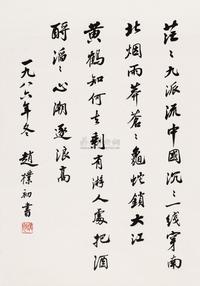 茫〻九派流中國沉〻一線穿南
北烟雨莽蒼〻龜蛇鎖大江
黄鶴知何去剩有游人處把酒
酹滔〻心潮逐浪高
一九八六年冬 趙樸初書